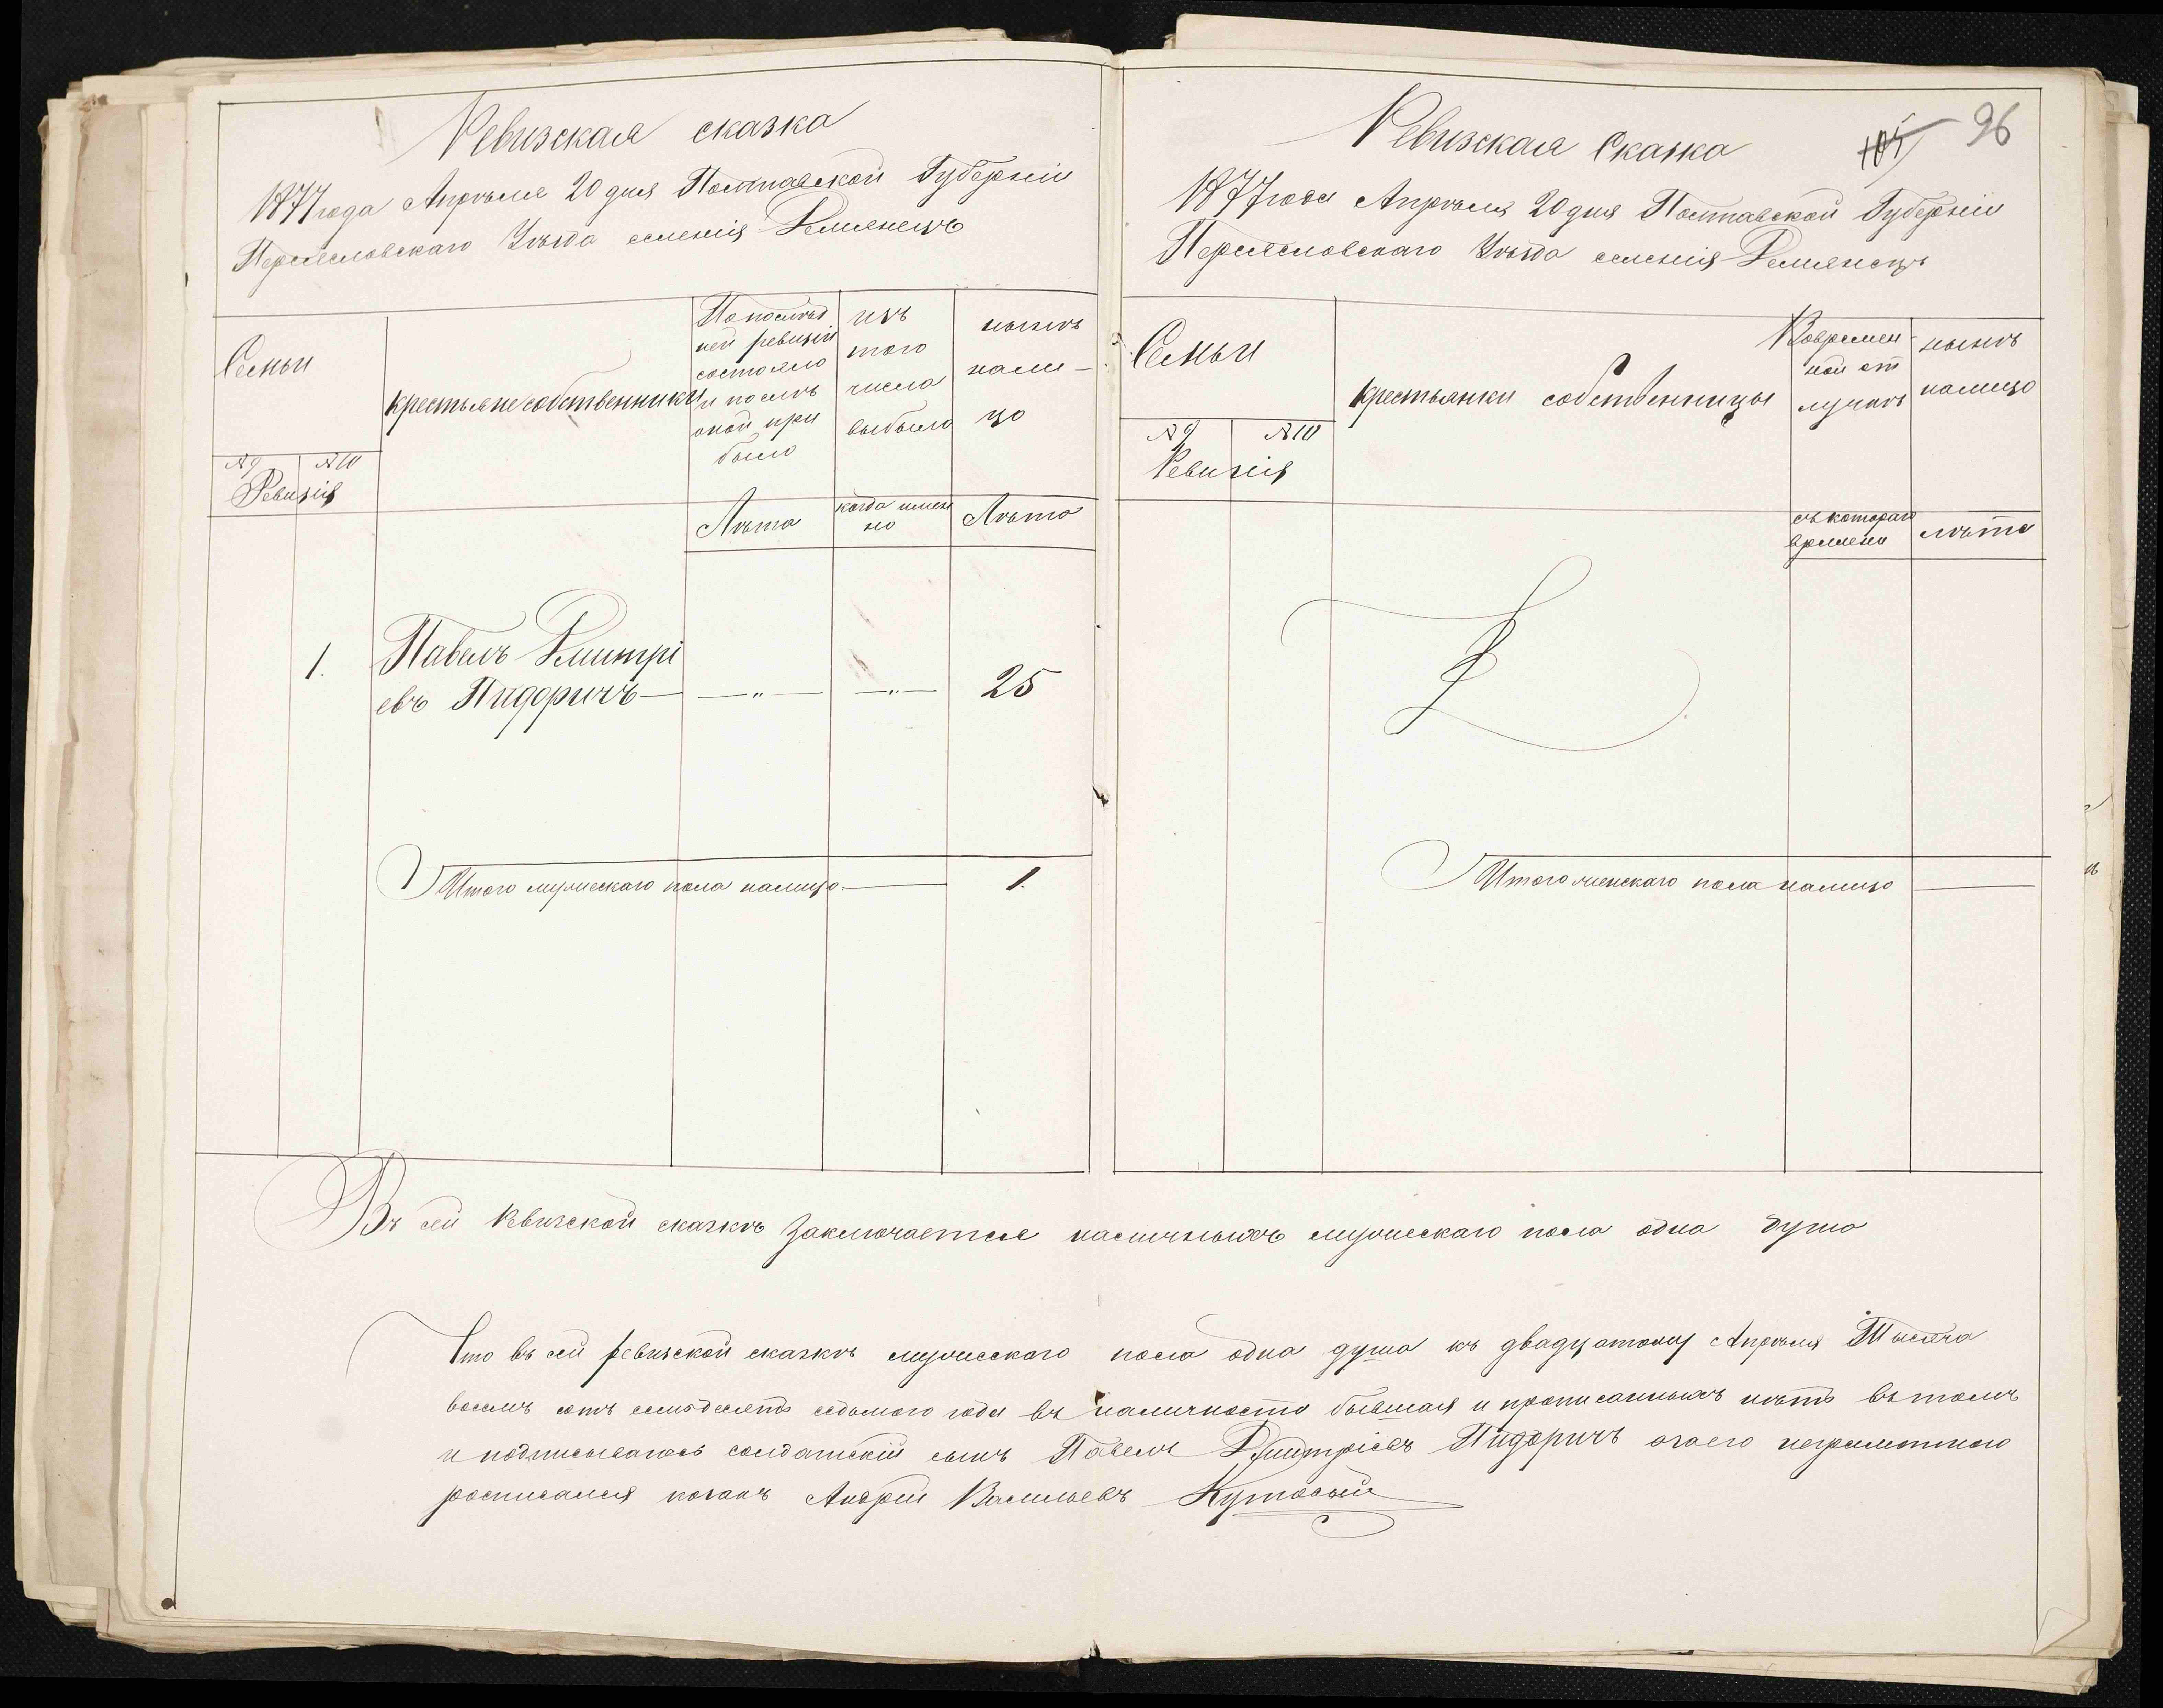 Ревизская сказка
1877 года Апрѣля 20 дня Полтавской Губерніи
Переясловскаго Уѣзда селенія Демянецъ
Семьи
№ 9 № 10
Ревизія
крестьяне собственники
По послѣд
ней ревизіи
состояло
и послѣ
оной при
было
изъ
того
числа
выбыло
нынѣ
нали-
цо
Лѣта
когда имен
но
Лѣта
1.
Павелъ Дмитрі
евъ Пидоричъ — — " — — " — 25
Итого мужескаго пола налицо — 1.
105 96
Ревизская Сказка
1877 года Апрѣля 20 дня Полтавской Губерніи
Переясловскаго Уѣзда селенія Демянецъ
Семьи
№ 9 № 10
Ревизія
крестьянки собственницы
Вовремен
ной от
лучкѣ
нынѣ
налицо
съ котораго
времени
лѣта
Итого женскаго пола налицо —
Въ сей Ревизской сказкѣ Заключается наличныхъ мужескаго пола одна душа
Что въ сей ревизской сказкѣ мужескаго пола одна душа къ двадцатому Апрѣля Тысяча
восемъ сотъ семьдесятъ седьмого года въ наличности бывшая и прописанныхъ нѣтъ въ томъ
и подписываюсь солдатскій сынъ Павелъ Дмитріевъ Пидоричъ а за его неграмотного
росписался козакъ Андрей Васильевъ Кутовый